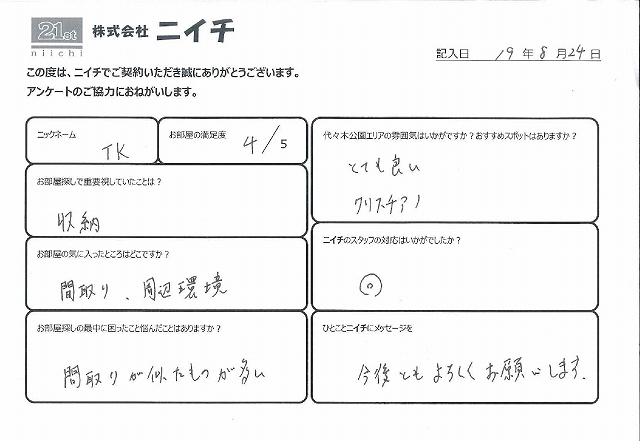 21st
niichi
株式会社 ニイチ
記入日 19年8月24日
この度は、ニイチでご契約いただき誠にありがとうございます。
アンケートのご協力におねがいします。
ニックネーム
TK
お部屋の満足度
4/5
お部屋探しで重要視していたことは?
収納
お部屋の気に入ったところはどこですか?
間取り、周辺環境
お部屋探しの最中に困ったこと悩んだことはありますか?
間取りが似たものが多い
代々木公園エリアの雰囲気はいかがですか?おすすめスポットはありますか?
とても良い
クリスチアノ
ニイチのスタッフの対応はいかがでしたか?
◎
ひとことニイチにメッセージを
今後ともよろしくお願いします.